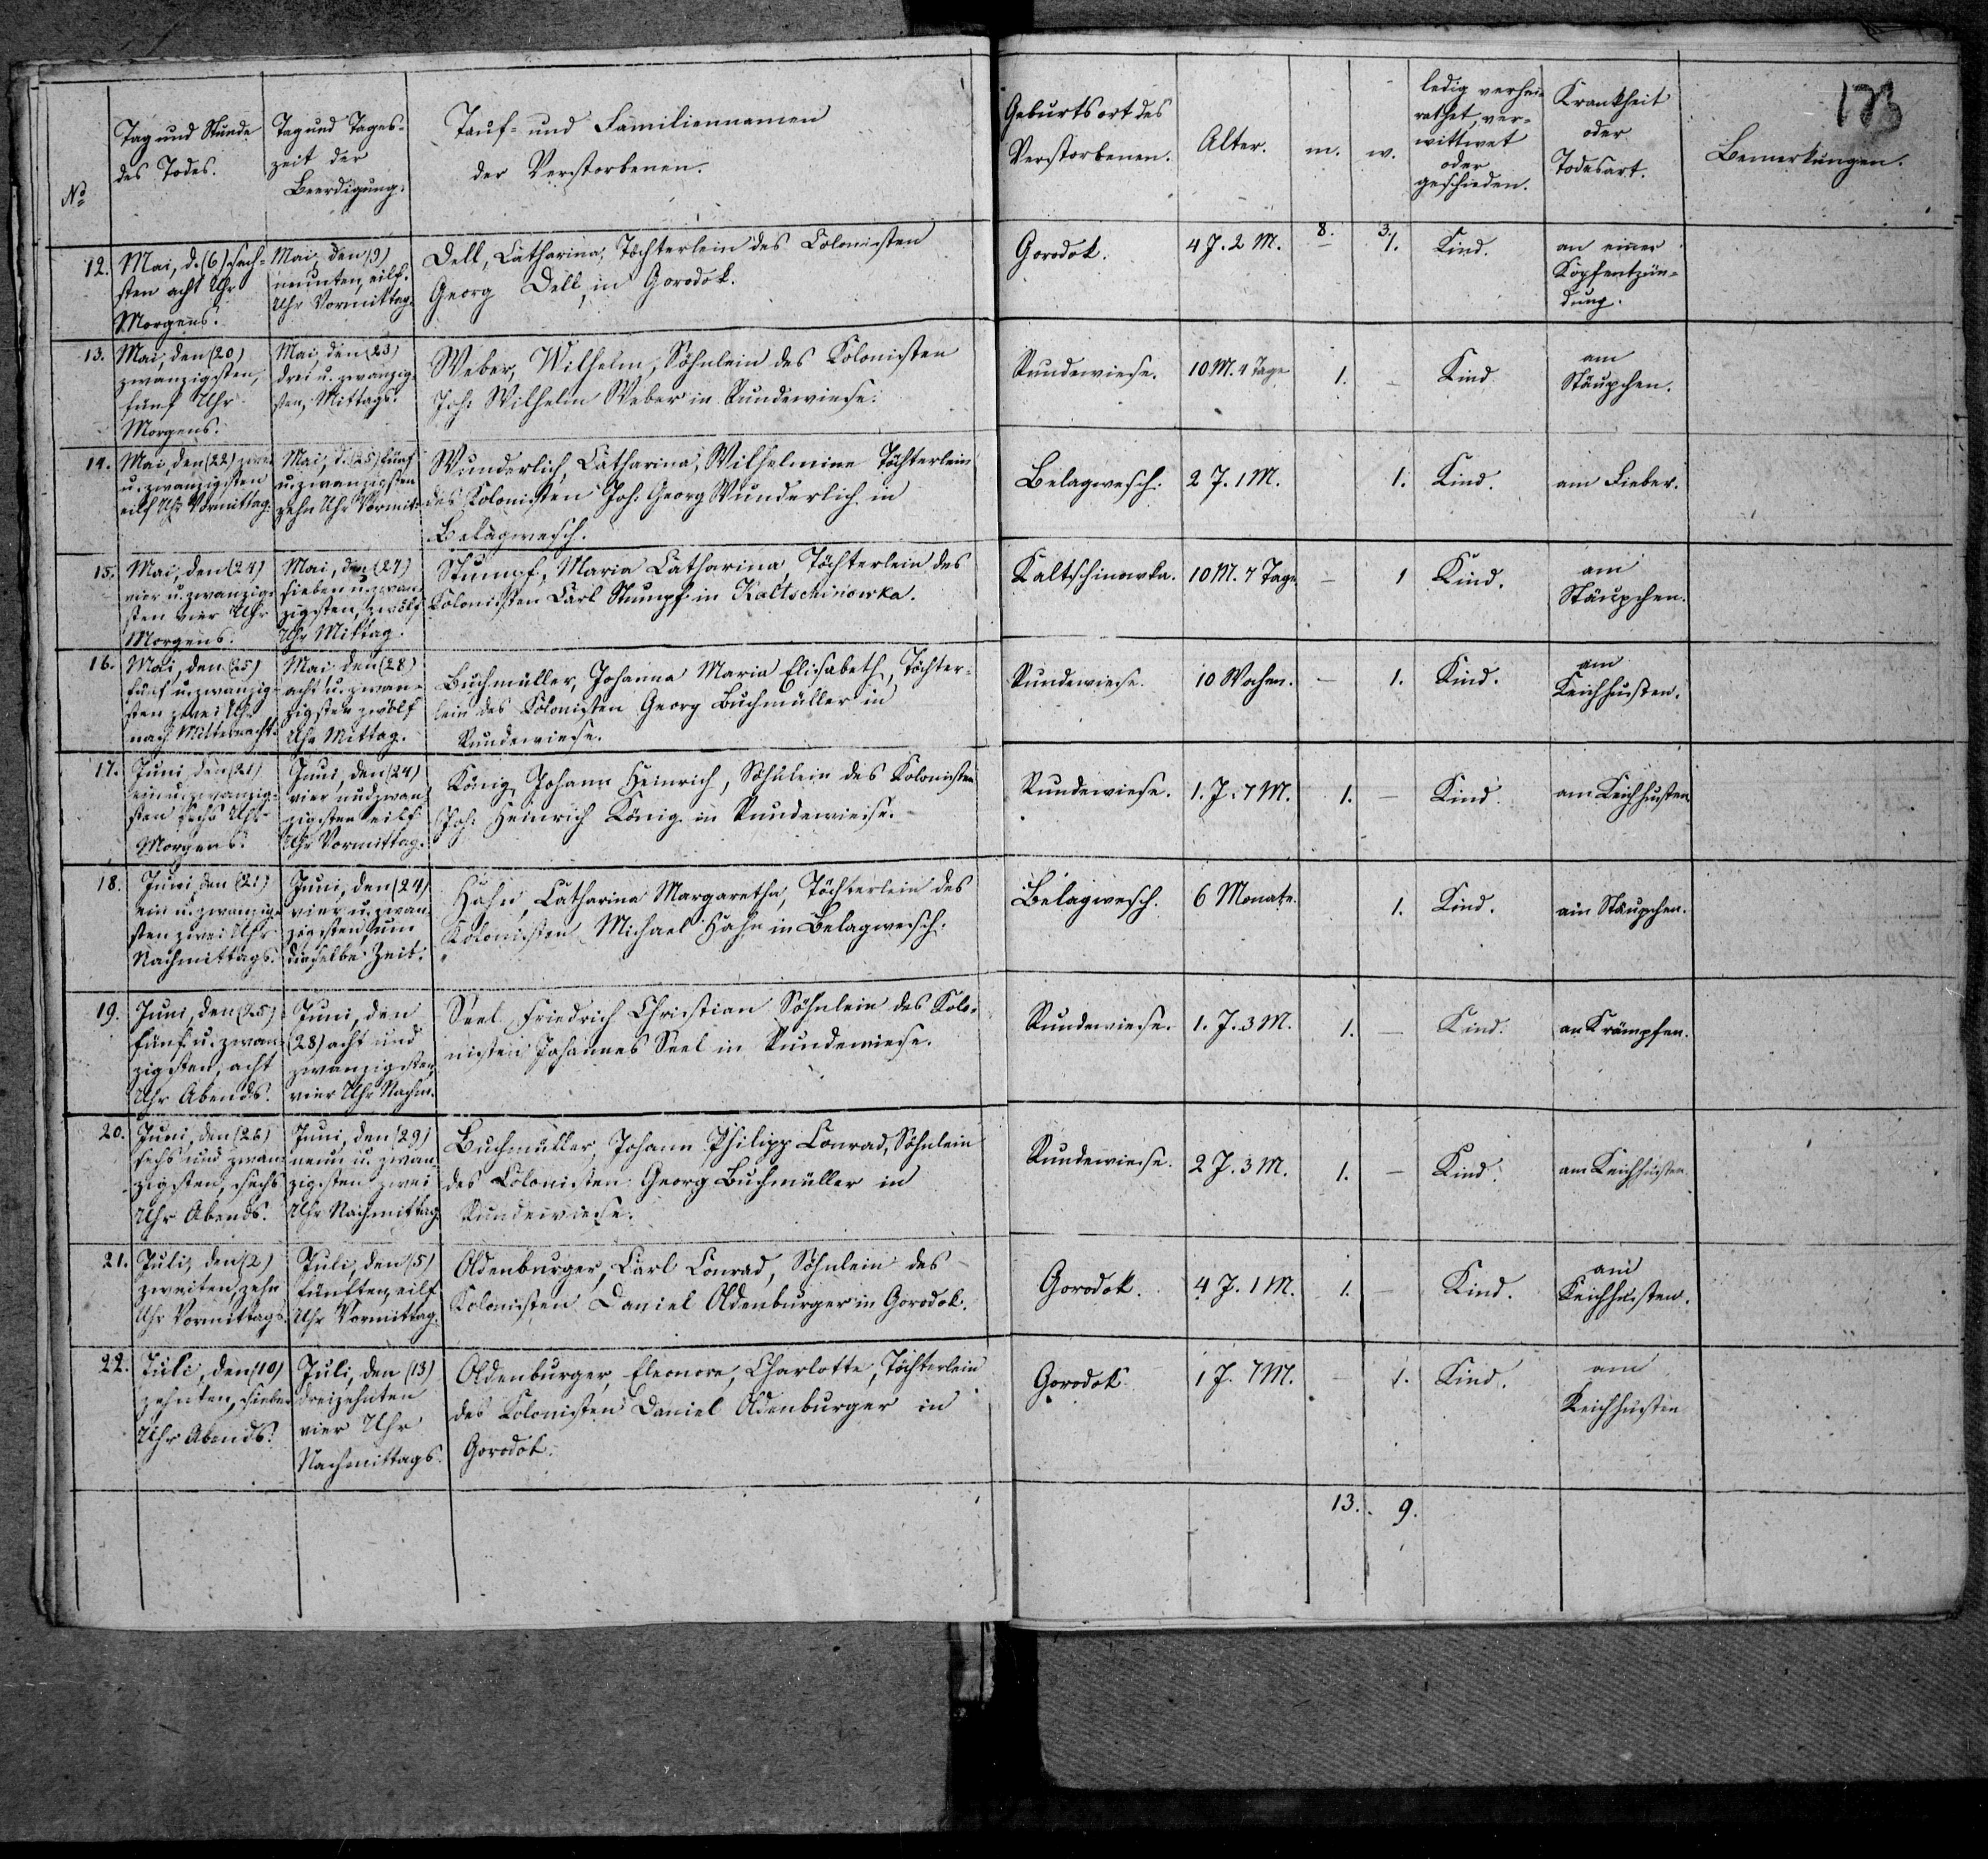 173
No
Tag und Stunde
des Todes.
Tag und Tages-
zeit der
Beerdigung.
Tauf- und Familiennamen
der Verstorbenen.
Geburtsort des
Verstorbenen.
Alter.
m.
w.
ledig verhei-
rathet, ver-
wittwet
oder
geschieden.
Krankheit
oder
Todesart.
Bemerkungen.
8. 3.
12.
Mai, d. (6) sech-
sten acht Uhr
Morgens.
Mai, den (9)
neunten, eilf
Uhr Vormittag.
Dell, Catharina, Töchterlein des Colonisten
Georg Dell, in Gorodok.
Gorodok.
4 J. 2 M.
–
1.
Kind.
an einer
Kopfentzün-
dung.
13.
Mai, den (20)
zwanzigsten,
fünf Uhr
Morgens.
Mai, den (23)
drei u. zwanzig-
sten, Mittags.
Weber, Wilhelm, Söhnlein des Kolonisten
Joh: Wilhelm Weber in Rundewiese.
Rundewiese.
10 M. 4 Tage
1.
–
Kind
am
Stäupchen.
14.
Mai, den (22) zwei
u. zwanzigsten
eilf Uhr Vormittag.
Mai, d. (25) fünf
u. zwanzigsten
zehn Uhr Vormit:
Wunderlich, Catharina, Wilhelmine Töchterlein
des Kolonisten Joh: Georg Wunderlich in
Belagwesch.
Belagwesch.
2 J. 1 M.
1.
Kind.
am Fieber.
15.
Mai, den (24)
vier u. zwanzig-
sten vier Uhr
Morgens.
Mai, den (27)
sieben u. zwan-
zigsten, zwölf
Uhr Mittag.
Stumpf, Maria Catharina Töchterlein des
Kolonisten Carl Stumpf in Kaltschinowka.
Kaltschinowka.
10 M. 7 Tage
–
1
Kind.
am
Stäupchen.
16.
Mai, den (25)
fünf u. zwanzig-
sten zwei Uhr
nach Mitternacht.
Mai, den (28)
acht u. zwan-
zigsten zwölf
Uhr Mittag.
Buchmüller, Johanna Maria Elisabeth, Töchter-
lein des Kolonisten Georg Buchmüller in
Rundewiese.
Rundewiese.
10 Wochen.
–
1.
Kind.
am
Keichhusten.
17.
Juni, den (21)
ein u. zwanzig-
sten sechs Uhr
Morgens.
Juni, den (24)
vier und zwan-
zigsten eilf
Uhr Vormittag.
König, Johann Heinrich, Söhnlein des Kolonisten
Joh: Heinrich König in Rundewiese.
Rundewiese.
1. J. 7 M.
1.
–
Kind.
am Keichhusten
18.
Juni, den (21)
ein u. zwanzig-
sten zwei Uhr
Nachmittags.
Juni, den (24)
vier u. zwan-
zigsten, um
dieselbe Zeit.
Hahn, Catharina Margaretha, Töchterlein des
Kolonisten Michael Hahn in Belagwesch.
Belagwesch.
6 Monate.
1.
Kind.
am Stäupchen.
19.
Juni, den (25)
fünf u. zwan-
zigsten, acht
Uhr Abends.
Juni, den
(28) acht und
zwanzigsten,
vier Uhr Nachm.
Seel Friedrich Christian Söhnlein des Kolo-
nisten Johannes Seel in Rundewiese.
Rundewiese.
1. J. 3 M.
1.
–
Kind.
an Krämpfen.
20.
Juni, den (26)
sechs und zwan-
zigsten, sechs
Uhr Abends.
Juni, den (29)
neun u. zwan-
zigsten zwei
Uhr Nachmittag
Buchmüller, Johann Philipp Conrad, Söhnlein
des Colonisten Georg Buchmüller in
Rundewiese.
Rundewiese.
2 J. 3 M.
1.
–
Kind.
am Keichhusten
21.
Juli, den (2)
zweiten, zehn
Uhr Vormittags.
Juli, den (5)
fünften, eilf
Uhr Vormittag.
Oldenburger, Carl Conrad, Söhnlein des
Kolonisten Daniel Oldenburger in Gorodok.
Gorodok.
4 J. 1 M.
1.
–
Kind.
am
Keichhusten.
22.
Juli, den (10)
zehnten, sieben
Uhr Abends.
Juli, den (13)
dreizehnten
vier Uhr
Nachmittags.
Oldenburger, Eleonore, Charlotte, Töchterlein
des Kolonisten Daniel Oldenburger in
Gorodok.
Gorodok
1 J. 7 M.
–
1.
Kind.
am
Keichhusten
13. 9.